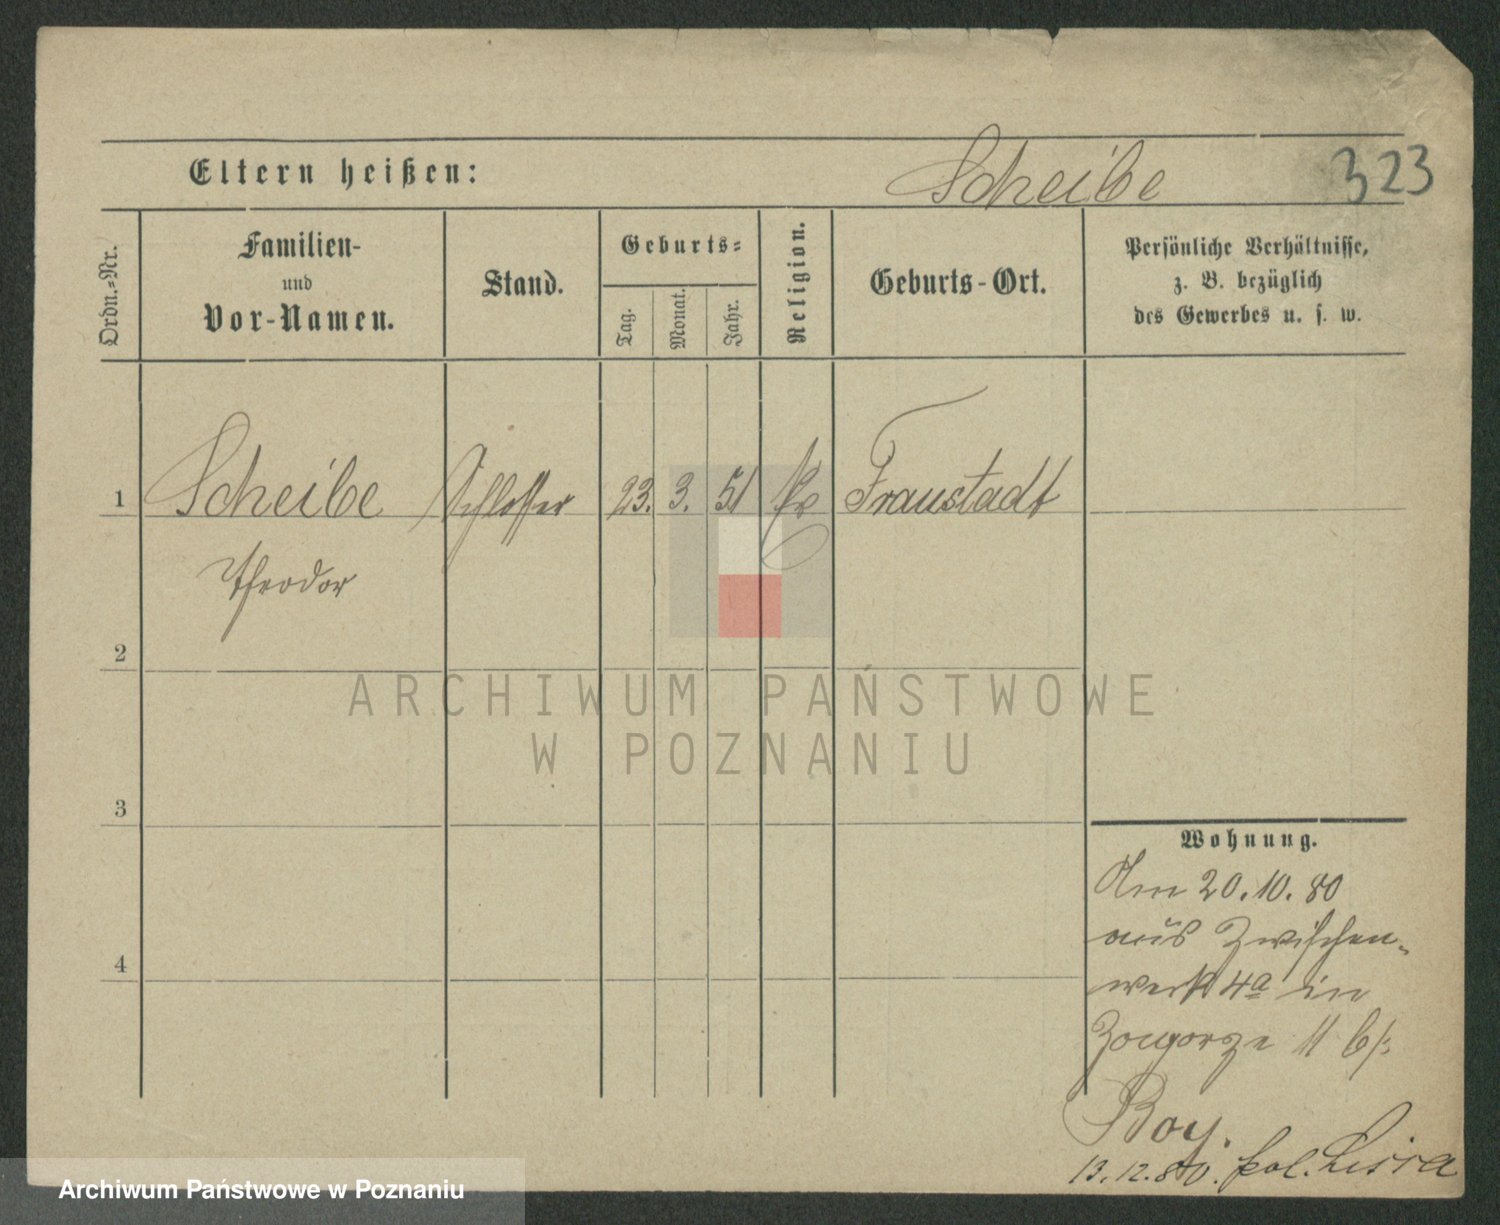 Eltern heißen:
Scheibe
323
Ordn.-Nr.
Familien-
und
Vor-Namen.
Stand.
Geburts-
Tag.
Monat.
Jahr.
Religion.
Geburts-Ort.
Persönliche Verhältnisse,
z. B. bezüglich
des Gewerbes u. s. w.
1 Scheibe Schlosser 23. 3. 51 Fraustadt
Theodor
2
3
4
ARCHIWUM PAŃSTWOWE
W POZNANIU
Wohnung.
Am 20.10.80
aus Zwischen-
werk 4a in
Zagorze 11 b/:
Boy.
13.12.80. pol. Lissa
Archiwum Państwowe w Poznaniu